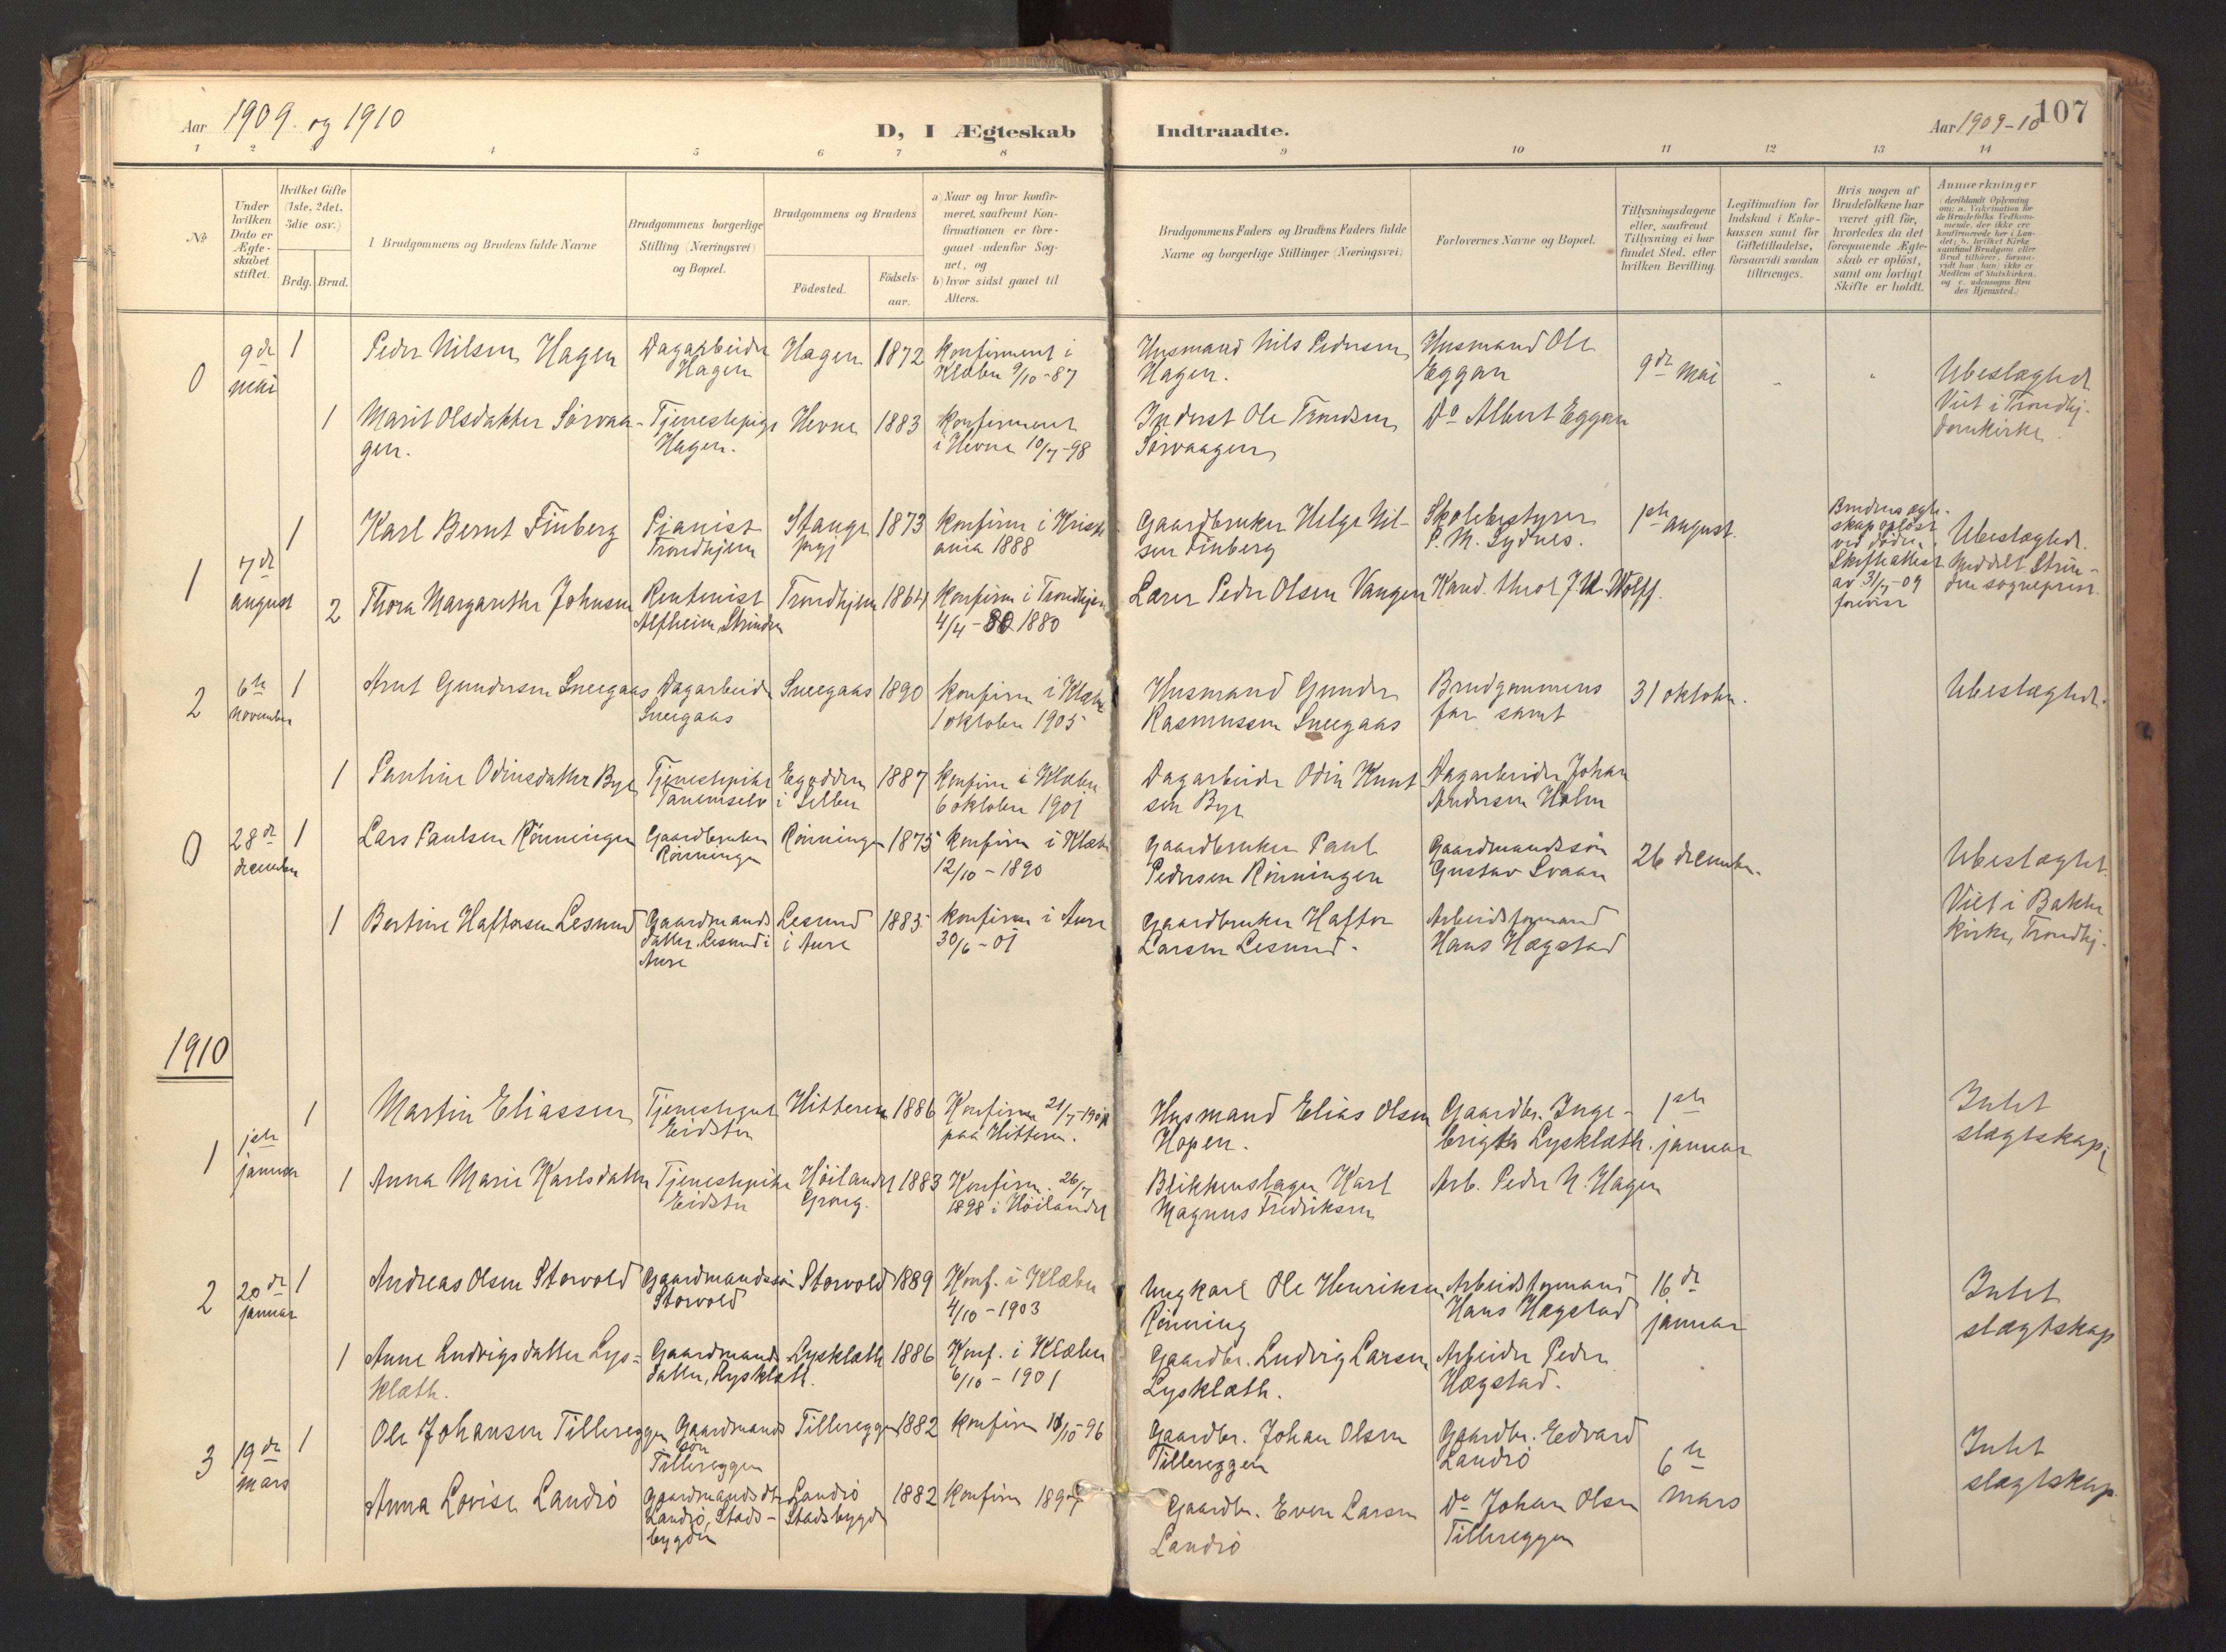 Aar 1909. og 1910
D, I Ægteskab
Indtraadte.
Aar 1909-10
107
1 2 3 4 5 6 7 8 9 10 11 12 13 14
No
Under hvilken Dato er Ægteskabet stiftet.
Hvilket Gifte (1ste, 2det, 3die osv.)
Brdg. Brud.
I Brudgommens og Brudens fulde Navne
Brudgommens borgerlige Stilling (Næringsvei) og Bopæl.
Brudgommens og Brudens
Födested.
Födsels-aar.
a) Naar og hvor konfirmeret, saafremt Konfirmationen er foregaaet udenfor Sognet, og
b) hvor sidst gaaet til Alters.
Brudgommens Faders og Brudens Faders fulde Navne og borgerlige Stillinger (Næringsvei)
Forlovernes Navne og Bopæl.
Tillysningsdagene eller, saafremt Tillysning ei har fundet Sted, efter hvilken Bevilling.
Legitimation for Indskud i Enkekassen samt for Giftetilladelse, forsaavidt saadan tiltrænges.
Hvis nogen af Brudefolkene har været gift för, hvorledes da det foregaaende Ægteskab er oplöst, samt om lovligt Skifte er holdt.
Anmærkninger
0
9de mai
1
Peder Nilsen Hagen
Dagarbeider Hagen
Hagen
1872
Konfirment i Klæbu 9/10-87
Husmand Nils Pedersen Hagen.
Husmand Ole Eggan
9de mai
Ubeslægted
Viet i Trondhj. domkirke.
1
Marit Olsdatter Sörvaagen.
Tjenestepige Hagen.
Hevne
1883
Konfirment i Hevne 10/7-98
Inderst Ole Trondsen Sörvaagen
Do Albert Eggan
1
7de august
1
Karl Bernt Finberg
Pianist Trondhjem
Stange prgj
1873
Konfirm i Kristiania 1888
Gaardbruker Helge Nilsen Finberg
Skolebestyrer P. M. Sydnes.
1ste august.
Brudens egteskap oplöst ved döden. Skifteattest av 31/7-09 forevist
Ubeslægted.
Meddelt Strindens sogneprest.
2
Thora Margarethe Johnsen
Rentenist Alfheim, Strinden
Trondhjem
1864
Konfirm i Trondhjem 4/4-80 1880
Lærer Peder Olsen Vangen
Kand. theol J. K. Wolff.
2
6te november
1
Arnt Gundersen Sneegaas
Dagarbeider Sneegaas
Sneegaas
1890
Konfirm i Klæbu 1 oktober 1905
Husmand Gunder Rasmussen Sneegaas
Brudgommens far samt
31 oktober.
Ubeslægted.
1
Pauline Odinsdatter Bye
Tjenestepike Tanemselv
Egodden i Selbu
1887
Konfirm i Klæbu 6 oktober 1901
Dagarbeider Odin Knutsen Bye
Dagarbeider Johan Andersen Holm
0
28de december
1
Lars Paulsen Rönningen
Gaardbruker Rönningen
Rönningen
1875
Konfirm i Klæbu 12/10-1890
Gaardbruker Paul Pedersen Rönningen
Gaardmandssön Gustav Svaan
26 december.
Ubeslægtet.
Viet i Bakke kirke, Trondhj.
1
Bertine Haftorsen Lesund
Gaardmandsdatter. Lesund i Aure
Lesund i Aure
1885
Konfirm i Aure 30/6-01
Gaardbruker Haftor Larsen Lesund.
Arbeidsformand Hans Hægstad
1910
1
1ste januar
1
Martin Eliassen
Tjenestegut Eidstu
Hitteren
1886
Konfirm 21/7-1901 paa Hitteren.
Husmand Elias Olsen Hopen.
Gaardbr. Ingebrigt Lysklæth.
1ste januar
Intet slægtskap
1
Anna Marie Karlsdatter
Tjenestepike Eidstu
Höilandet Grong.
1883
Konfirm. 26/7 1898 i Höilandet
Blikkenslager Karl Magnus Fredriksen
Arb. Peder N. Hagen
2
20de januar
1
Andreas Olsen Storvold
Gaardmandssön Storvold
Storvold
1889
Konf. i Klæbu 4/10-1903
Ungkarl Ole Henriksen Rönning
Arbeidsformand Hans Hægstad
16de januar
Intet slægtskap
1
Anne Ludvigsdatter Lysklæth.
Gaardmandsdatter, Lysklæth.
Lysklæth
1886
Konf. i Klæbu 6/10-1901
Gaardbr. Ludvig Larsen Lysklæth.
Arbeider Peder Hægstad.
3
19de mars
1
Ole Johansen Tillereggen
Gaardmandssön Tillereggen
Tillereggen
1882
Konfirm 11/10-96
Gaardbr. Johan Olsen Tillereggen
Gaardbr. Edvard Landrö
6te mars
Intet slægtskap
Anna Lovise Landrö
Gaardmandsdtr Landrö, Stadsbygden
Landrö Stadsbygd
1882
Konfirm 1897
Gaardbr. Even Larsen Landrö
Do Johan Olsen Tillereggen